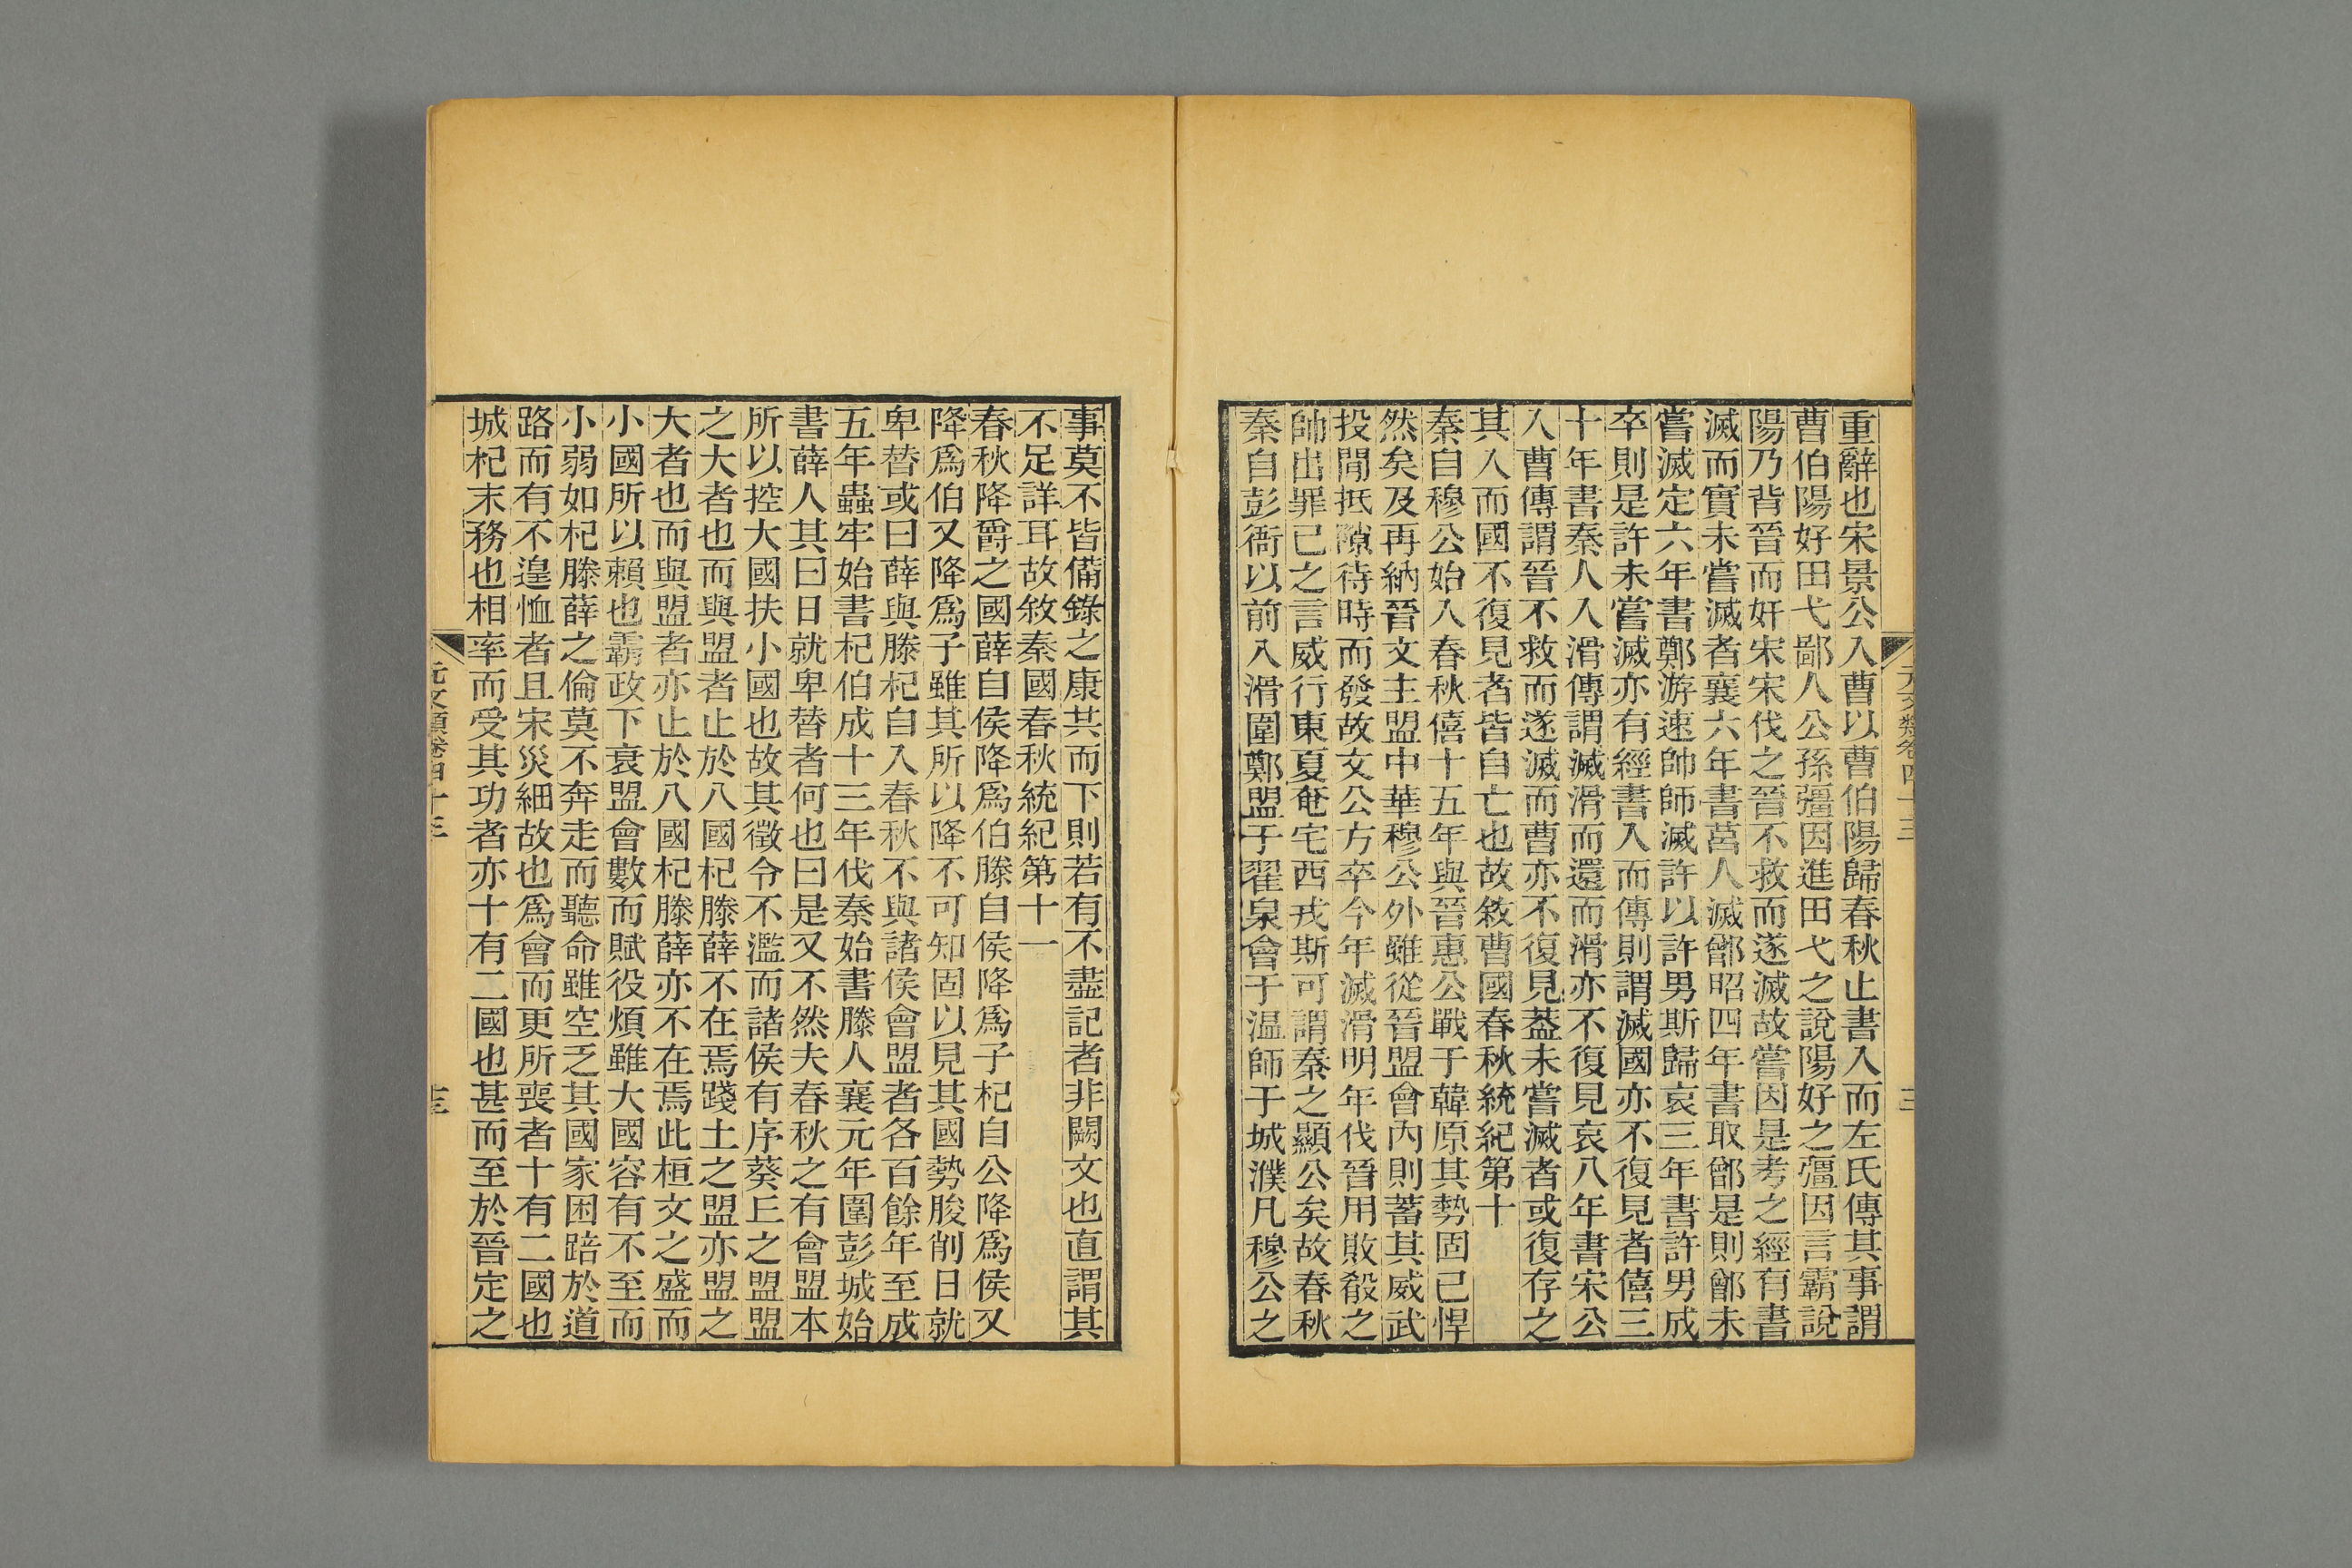 重辭也宋景公入曹以曹伯陽歸春秋止書入而左氏傳其事謂
曹伯陽好田弋鄙人公孫彊因進田弋之說陽好之彊因言霸說
陽乃背晉而奸宋宋伐之晉不救而遂滅故嘗因是考之經有書
滅而實未嘗滅者襄六年書莒人滅鄫昭四年書取鄫是則鄫未
嘗滅定六年書鄭游速帥師滅許以許男斯歸哀三年書許男成
卒則是許未嘗滅亦有經書入而傳則謂滅國亦不復見者僖三
十年書秦人入滑傳謂滅滑而還而滑亦不復見哀八年書宋公
入曹傳謂晉不救而遂滅而曹亦不復見葢未嘗滅者或復存之
其入而國不復見者皆自亡也故敘曹國春秋統紀第十
秦自穆公始入春秋僖十五年與晉惠公戰于韓原其勢固已悍
然矣及再納晉文主盟中華穆公外雖從晉盟會內則蓄其威武
投閒抵隙待時而發故文公方卒今年滅滑明年伐晉用敗殽之
帥出罪已之言威行東夏奄宅西戎斯可謂秦之顯公矣故春秋
秦自彭衙以前入滑圍鄭盟于翟泉會于温師于城濮凡穆公之
元文類卷四十三
事莫不皆備錄之康共而下則若有不盡記者非闕文也直謂其
不足詳耳故敘秦國春秋統紀第十一
春秋降爵之國薛自侯降爲伯滕自侯降爲子杞自公降爲侯又
降爲伯又降爲子雖其所以降不可知固以見其國勢朘削日就
卑替或曰薛與滕杞自入春秋不與諸侯會盟者各百餘年至成
五年蟲牢始書杞伯成十三年伐秦始書滕人襄元年圍彭城始
書薛人其曰日就卑替者何也曰是又不然夫春秋之有會盟本
所以控大國扶小國也故其徵令不濫而諸侯有序葵丘之盟盟
之大者也而與盟者止於八國杞滕薛不在焉踐土之盟亦盟之
大者也而與盟者亦止於八國杞滕薛亦不在焉此桓文之盛而
小國所以賴也霸政下衰盟會數而賦役煩雖大國容有不至而
小弱如杞滕薛之倫莫不奔走而聽命雖空乏其國家困踣於道
路而有不遑恤者且宋災細故也爲會而更所喪者十有二國也
城杞末務也相率而受其功者亦十有二國也甚而至於晉定之
元文類卷四十三
十三